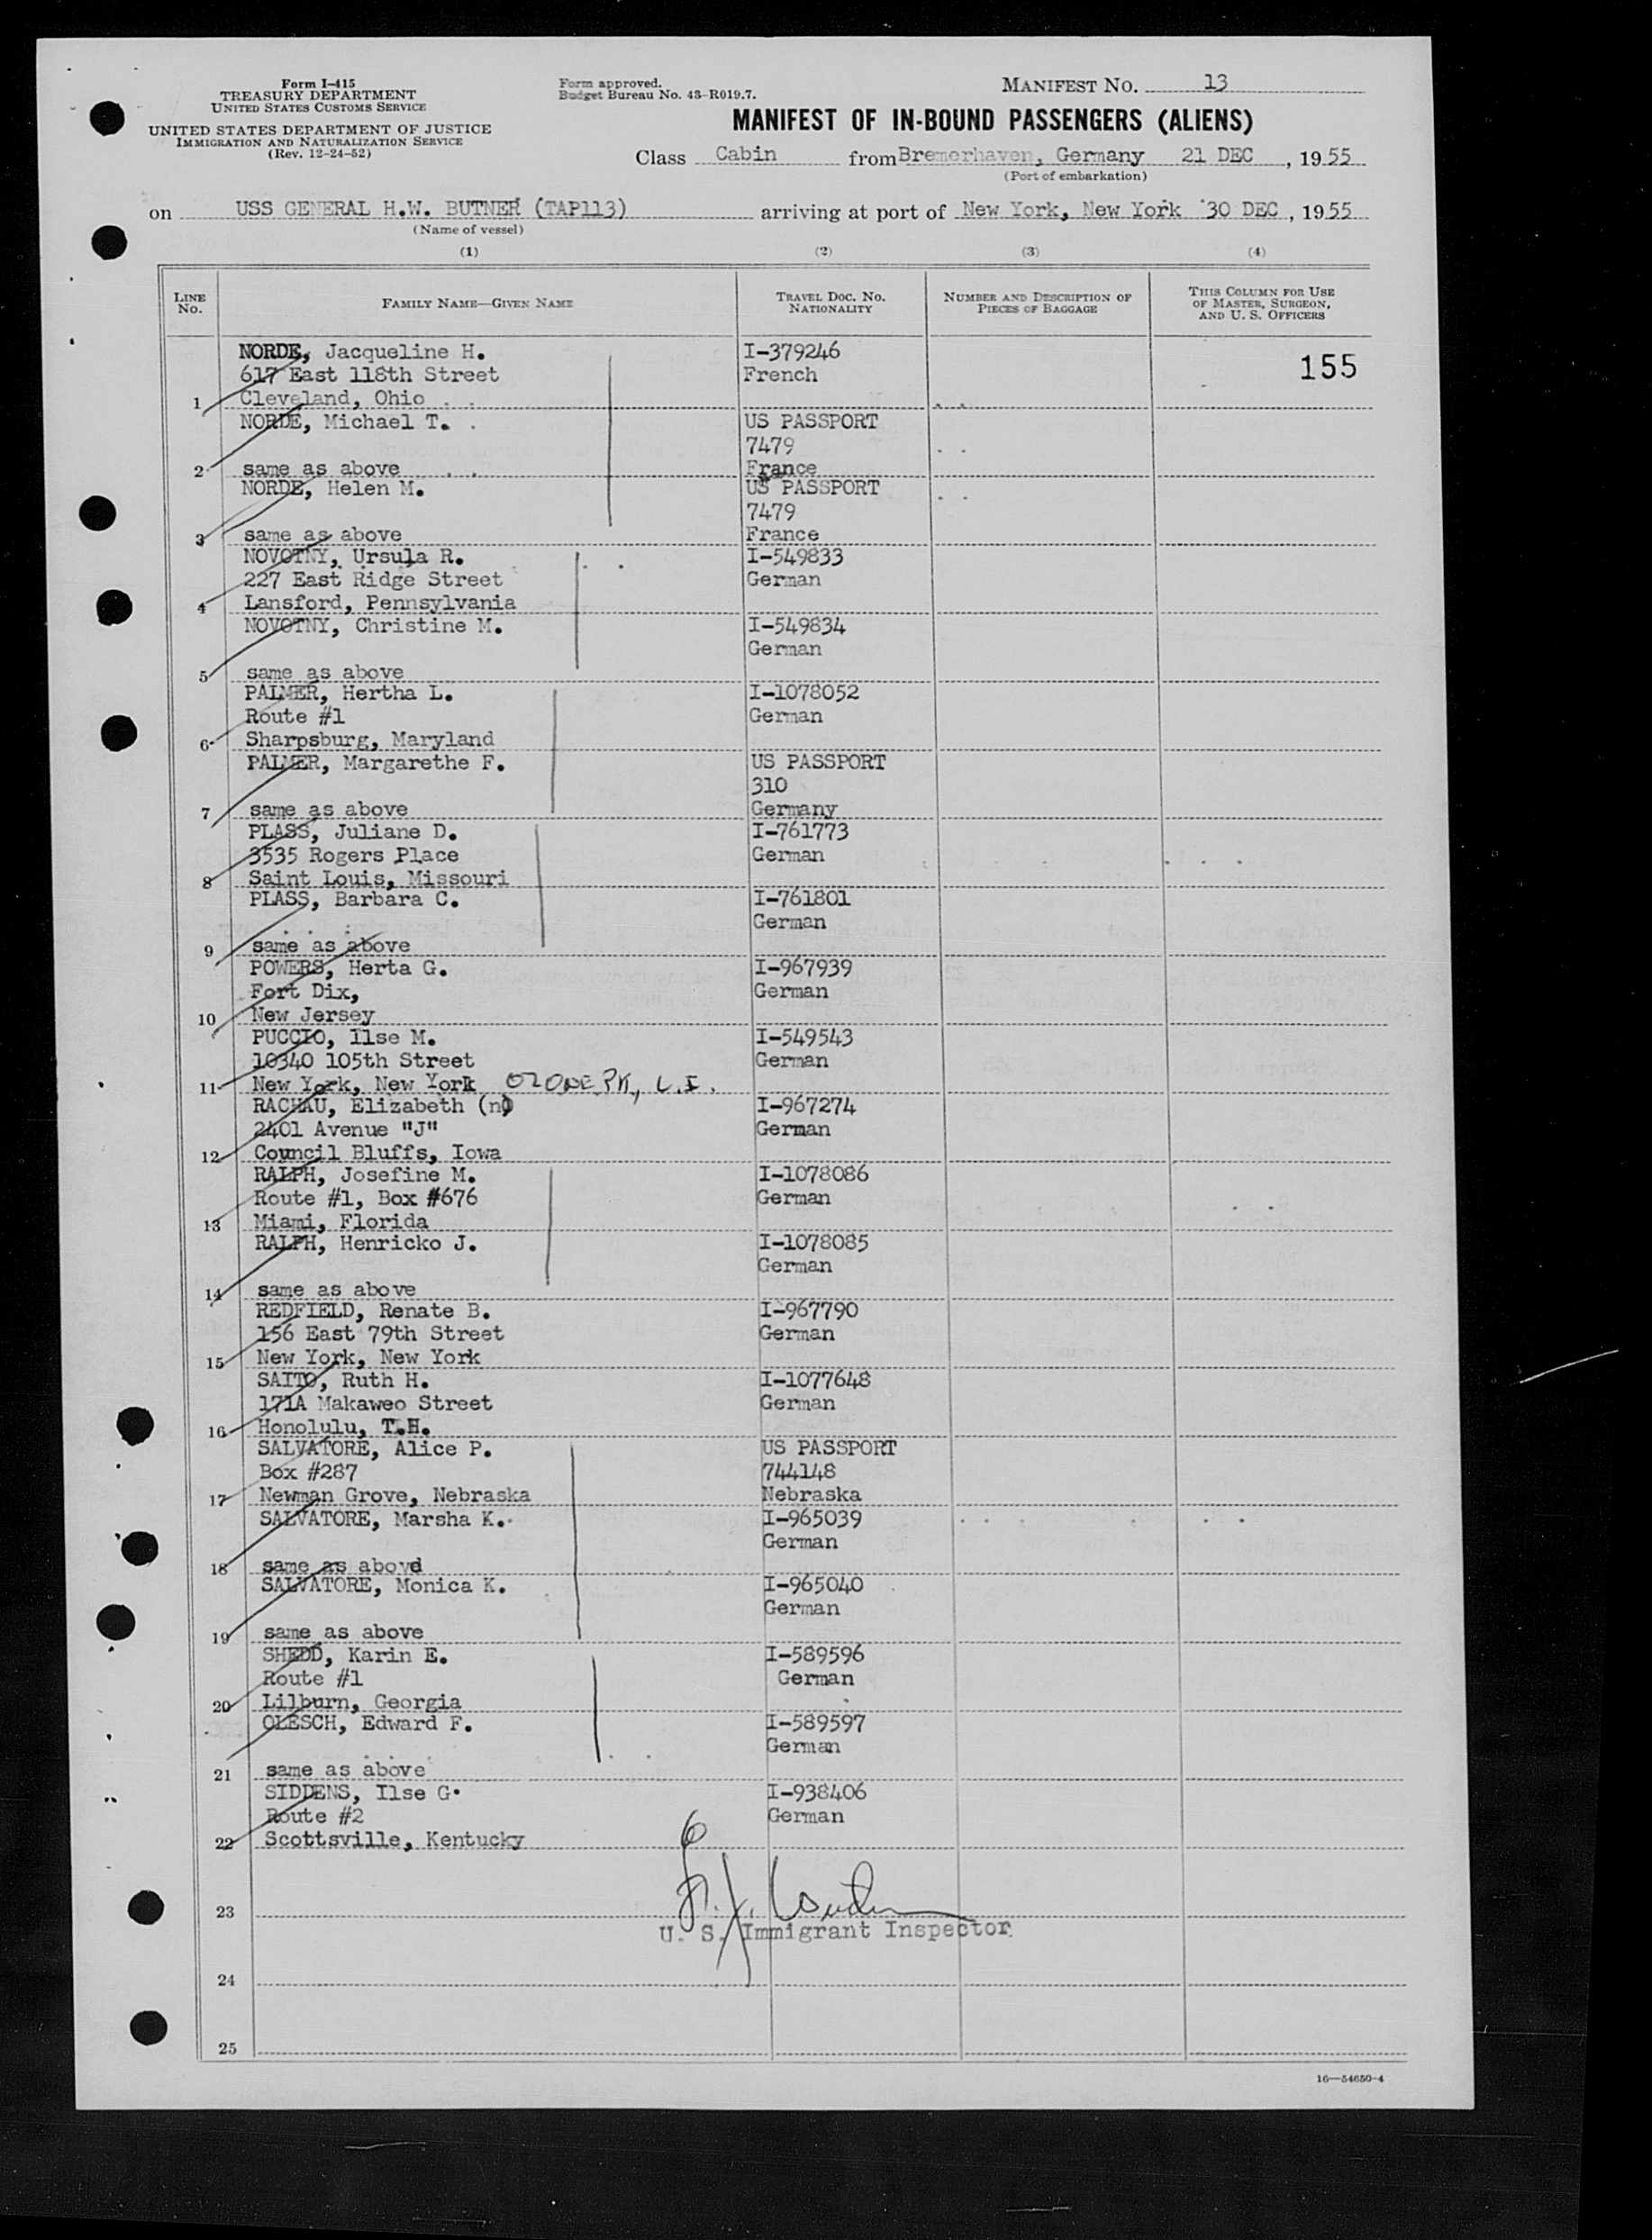 Form I-415
TREASURY DEPARTMENT
UNITED STATES CUSTOMS SERVICE
UNITED STATES DEPARTMENT OF JUSTICE
IMMIGRATION AND NATURALIZATION SERVICE
(Rev. 12-24-52)
Form approved.
Budget Bureau No. 43-R019.7.
MANIFEST NO. 13
MANIFEST OF IN-BOUND PASSENGERS (ALIENS)
Class Cabin from Bremerhaven, Germany 21 DEC, 1955
(Port of embarkation)
on USS GENERAL H.W. BUTNER (TAP113) arriving at port of New York, New York 30 DEC, 1955
(Name of vessel)
(1) (2) (3) (4)
LINE NO. FAMILY NAME—GIVEN NAME TRAVEL DOC. NO. NATIONALITY NUMBER AND DESCRIPTION OF PIECES OF BAGGAGE THIS COLUMN FOR USE OF MASTER, SURGEON, AND U. S. OFFICERS
NORDE, Jacqueline H. I-379246
155
617 East 118th Street French
1 Cleveland, Ohio
NORDE, Michael T. US PASSPORT
7479
2 same as above France
NORDE, Helen M. US PASSPORT
7479
3 same as above France
NOVOTNY, Ursula R. I-549833
227 East Ridge Street German
4 Lansford, Pennsylvania
NOVOTNY, Christine M. I-549834
German
5 same as above
PALMER, Hertha L. I-1078052
Route #1 German
6 Sharpsburg, Maryland
PALMER, Margarethe F. US PASSPORT
310
7 same as above Germany
PLASS, Juliane D. I-761773
3535 Rogers Place German
8 Saint Louis, Missouri
PLASS, Barbara C. I-761801
German
9 same as above
POWERS, Herta G. I-967939
Fort Dix, German
10 New Jersey
PUCCIO, Ilse M. I-549543
10340 105th Street German
11 New York, New York OZONE PK, L.I.
RACHAU, Elizabeth (n) I-967274
2401 Avenue "J" German
12 Council Bluffs, Iowa
RALPH, Josefine M. I-1078086
Route #1, Box #676 German
13 Miami, Florida
RALPH, Henricko J. I-1078085
German
14 same as above
REDFIELD, Renate B. I-967790
156 East 79th Street German
15 New York, New York
SAITO, Ruth H. I-1077648
171A Makaweo Street German
16 Honolulu, T.H.
SALVATORE, Alice P. US PASSPORT
Box #287 744148
17 Newman Grove, Nebraska Nebraska
SALVATORE, Marsha K. I-965039
German
18 same as abovd
SALVATORE, Monica K. I-965040
German
19 same as above
SHEDD, Karin E. I-589596
Route #1 German
20 Lilburn, Georgia
OLESCH, Edward F. I-589597
German
21 same as above
SIDDENS, Ilse G. I-938406
Route #2 German
22 Scottsville, Kentucky
23
U. S. Immigrant Inspector
24
25
16—54650-4